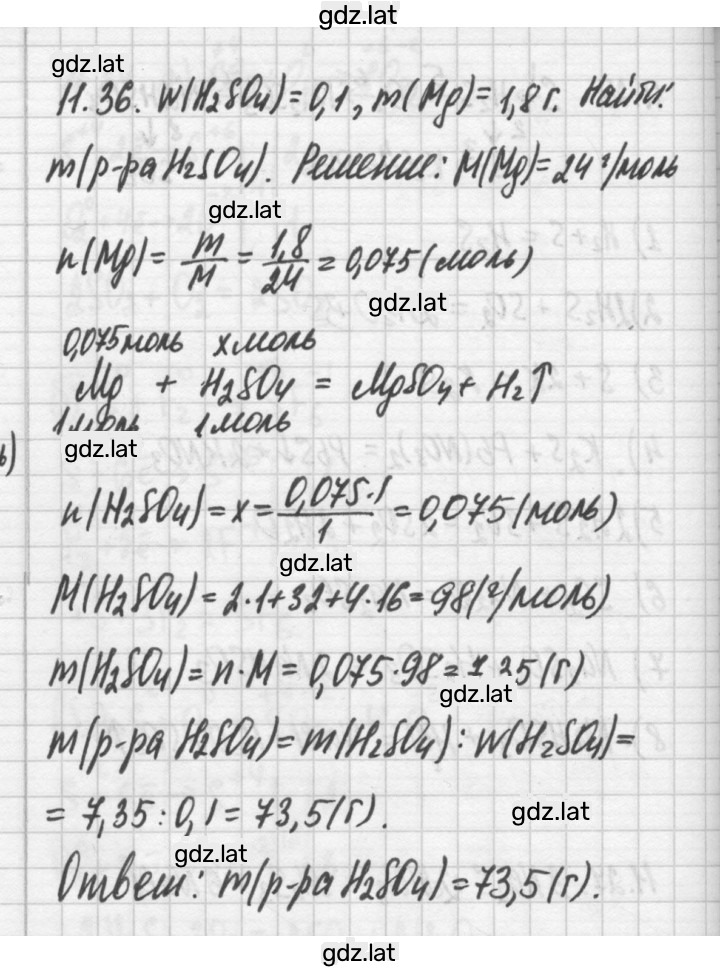 gdz.lat
gdz.lat
11.36. w(H₂SO₄)=0,1, m(Mg)=1,8 г. Найти:
m(р-ра H₂SO₄). Решение: M(Mg)=24 г/моль
gdz.lat
n(Mg)= m/M = 1,8/24 = 0,075 (моль)
gdz.lat
0,075 моль x моль
Mg + H₂SO₄ = MgSO₄ + H₂↑
1 моль 1 моль
gdz.lat
n(H₂SO₄)=x= 0,075·1/1 = 0,075 (моль)
gdz.lat
M(H₂SO₄)=2·1+32+4·16=98(г/моль)
m(H₂SO₄)=n·M=0,075·98= 25(г)
gdz.lat
m(р-ра H₂SO₄)=m(H₂SO₄):w(H₂SO₄)=
= 7,35:0,1=73,5(г).
gdz.lat
gdz.lat
Ответ: m(р-ра H₂SO₄)=73,5(г).
gdz.lat